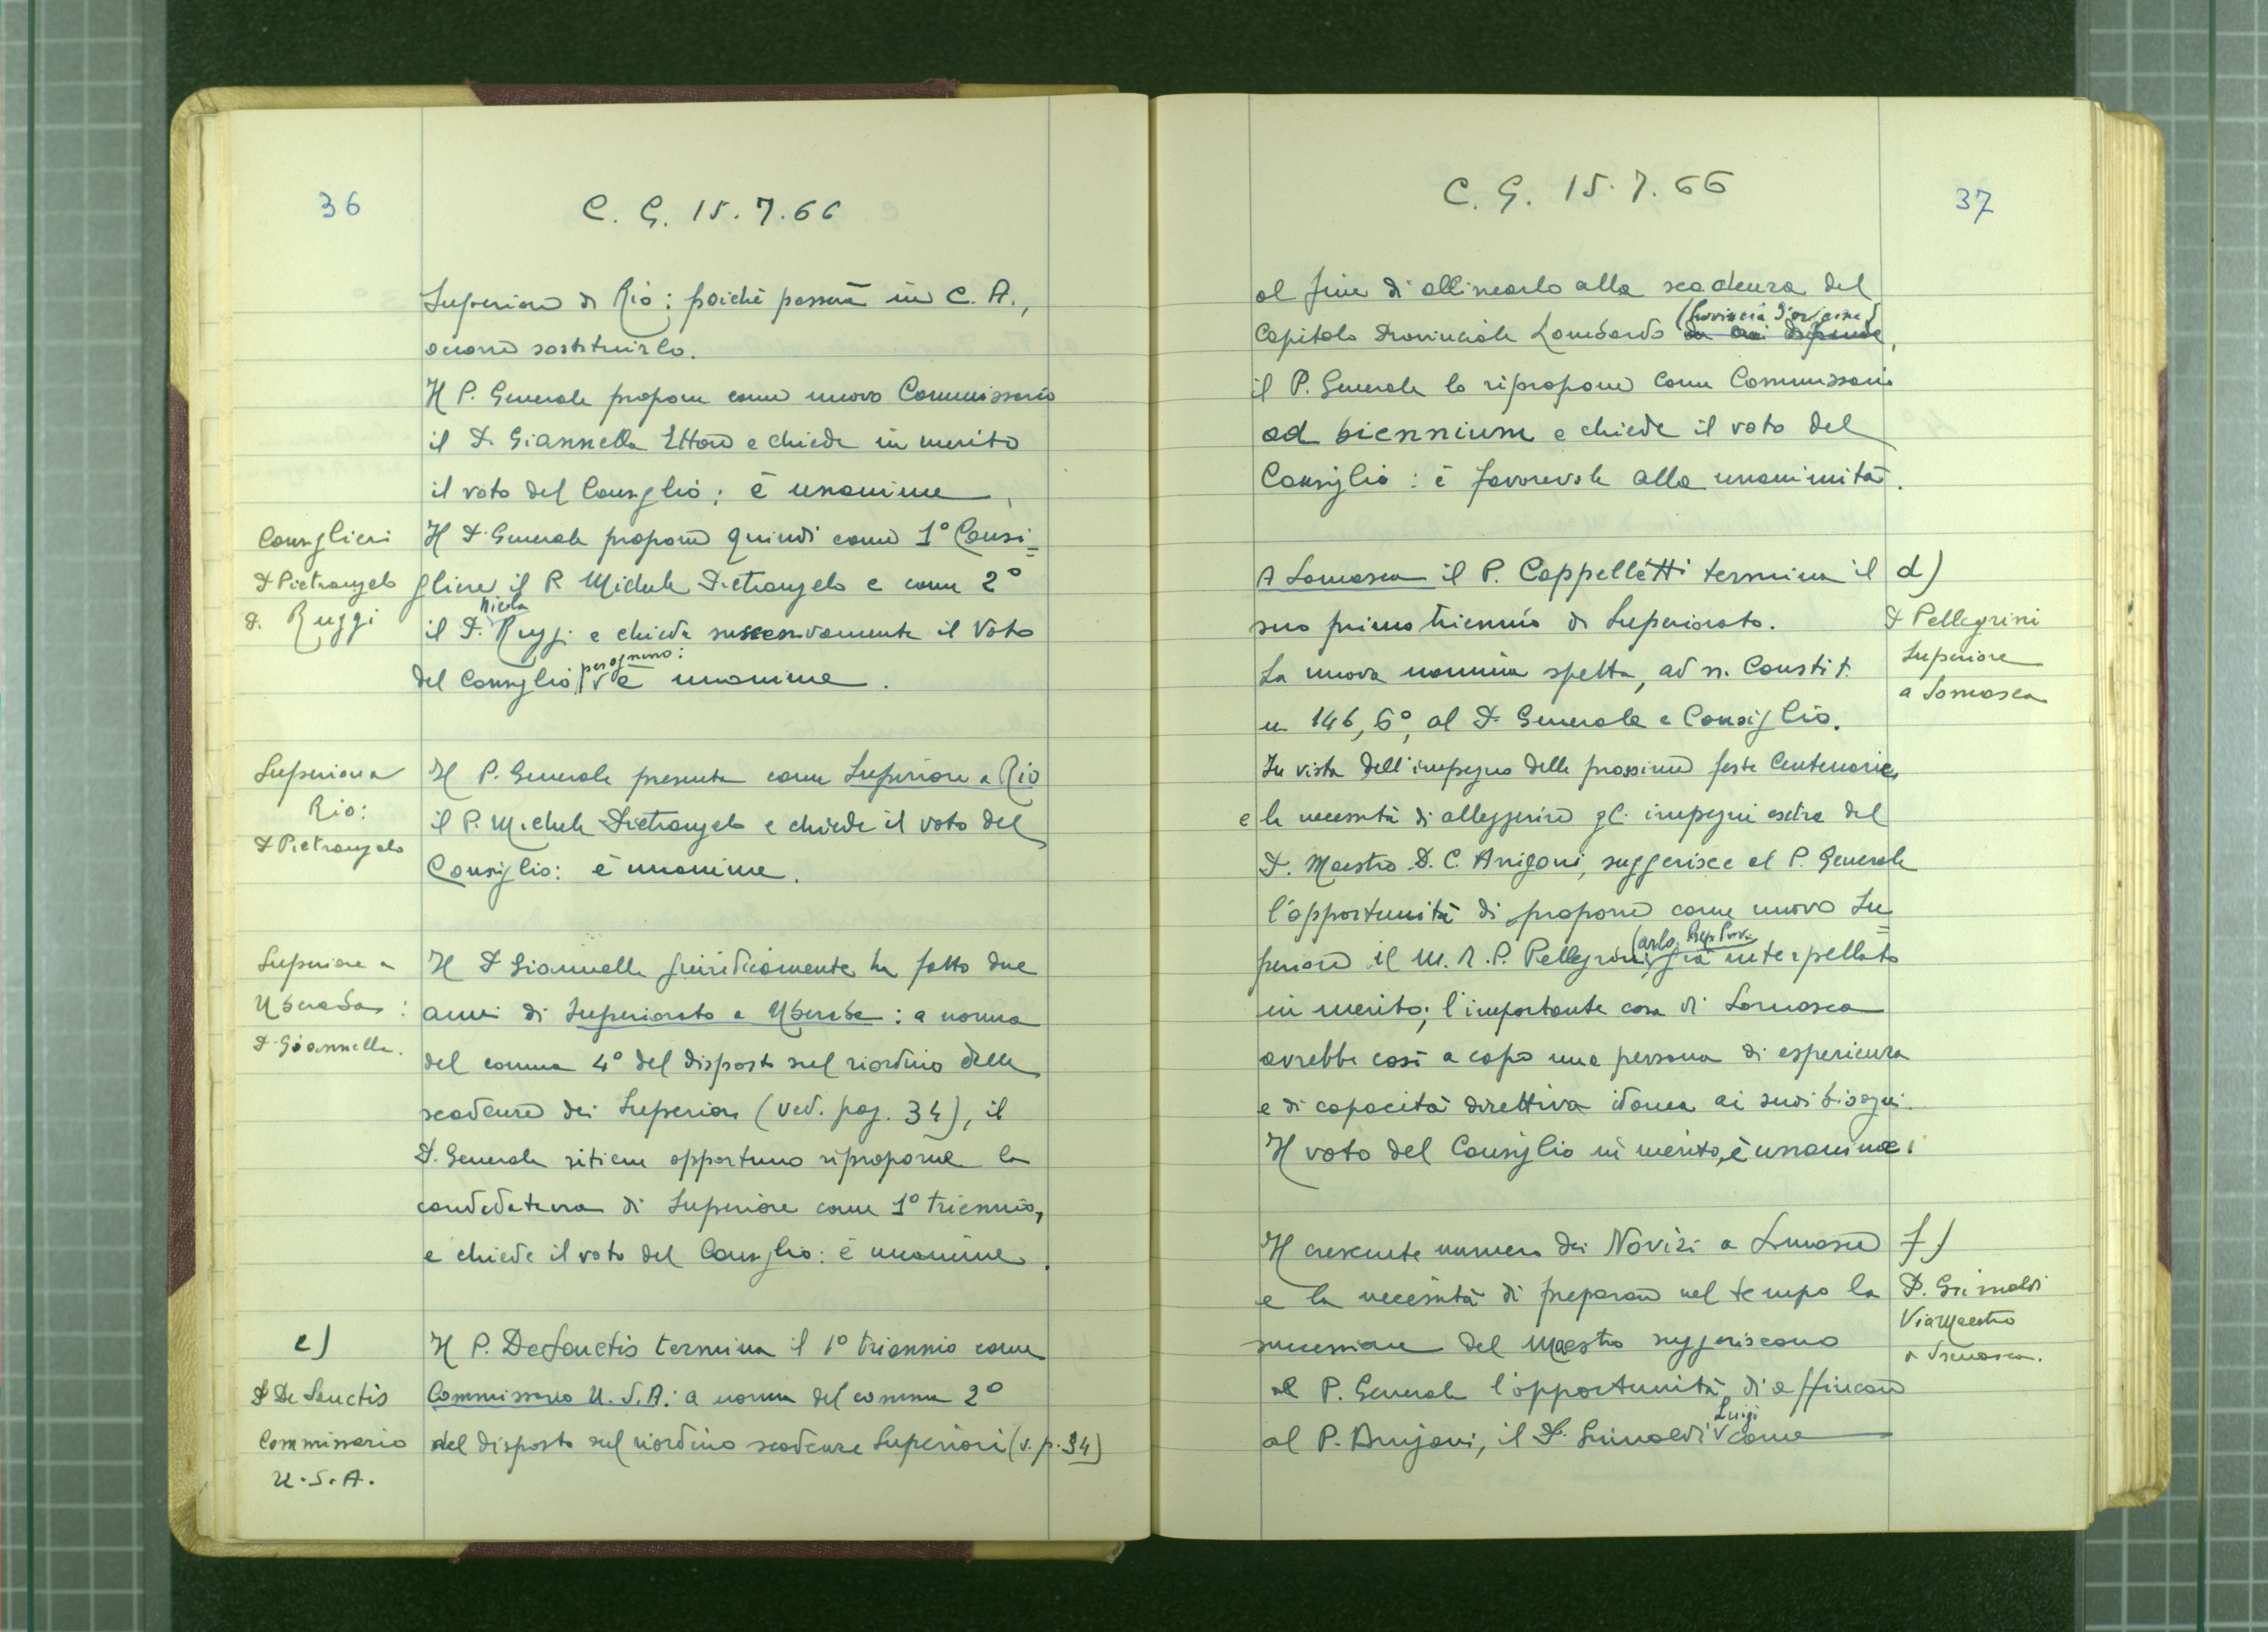 36
C. G. 15.7.66
Superiore di Rio: poiché passerà in C. A.,
occorre sostituirlo.
Il P. Generale propone come nuovo Commissario
il P. Giannella Ettore e chiede in merito
il voto del Consiglio: è unanime.
Consiglieri
P Pietrangelo
P. Ruggi
Il P. Generale propone quindi come 1° Consi=
gliere il P. Michele Pietrangelo e come 2°
il P. Nicola Ruggi e chiede successivamente il voto
del Consiglio per ognuno: è unanime.
Superiore a
Rio:
P Pietrangelo
Il P. Generale presenta come Superiore a Rio
il P. Michele Pietrangelo e chiede il voto del
Consiglio: è unanime.
Superiore a
Uberaba:
P. Giannella.
Il P Giannella giuridicamente ha fatto due
anni di Superiorato a Uberaba: a norma
del comma 4° del disposto sul riordino delle
scadenze dei Superiori (ved. pag. 34), il
P. Generale ritiene opportuno riproporre la
candidatura di Superiore come 1° triennio,
e chiede il voto del Consiglio: è unanime.
c)
P De Sanctis
Commissario
U.S.A.
Il P. De Sanctis termina il 1° triennio come
Commissario U.S.A.: a norma del comma 2°
del disposto sul riordino scadenze Superiori (v. p. 34)
C. G. 15.7.66
37
al fine di allinearlo alla scadenza del
Capitolo Provinciale Lombardo (Provincia d'origine) da cui dipende,
il P. Generale lo ripropone come Commissario
ad biennium e chiede il voto del
Consiglio: è favorevole alla unanimità.
d)
P Pellegrini
Superiore
a Somasca
A Somasca il P. Cappelletti termina il
suo primo triennio di Superiorato.
La nuova nomina spetta, ad n. Constit.
n 146, 6°, al P. Generale e Consiglio.
In vista dell'impegno delle prossime feste Centenarie,
e la necessità di alleggerire gli impegni extra del
P. Maestro P. C. Arrigoni, suggerisce al P. Generale
l'opportunità di proporre come nuovo Su=
periore il M. R. P. Pellegrini Carlo, Prep. Prov. già interpellato
in merito; l'importante casa di Somasca
avrebbe così a capo una persona di esperienza
e di capacità direttiva idonea ai suoi bisogni.
Il voto del Consiglio in merito, è unanime.
f)
P. Grimaldi
Vice Maestro
a Somasca.
Il crescente numero dei Novizi a Somasca
e la necessità di preparare nel tempo la
successione del Maestro suggeriscono
al P. Generale l'opportunità di affiancare
al P. Arrigoni, il P. Grimaldi Luigi come